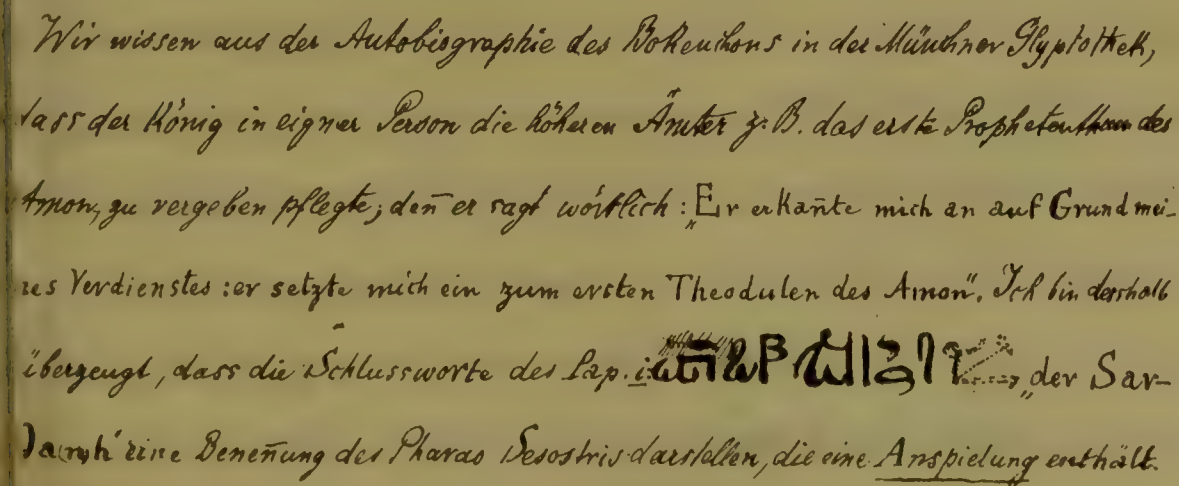 Wir wissen aus der Autobiographie des Bokenchons in der Münchner Glyptothek,
dass der König in eigner Person die höheren Ämter z. B. das erste Prophetenthum des
Amon, zu vergeben pflegte; den̄ er sagt wörtlich: „Er erkan̄te mich an auf Grund mei-
nes Verdienstes: er setzte mich ein zum ersten Theodulen des Amon“. Ich bin desshalb
überzeugt, dass die Schlussworte des Pap. „der Sar-
eine Benen̄ung des Pharao Sesostris darstellen, die eine Anspielung enthält.